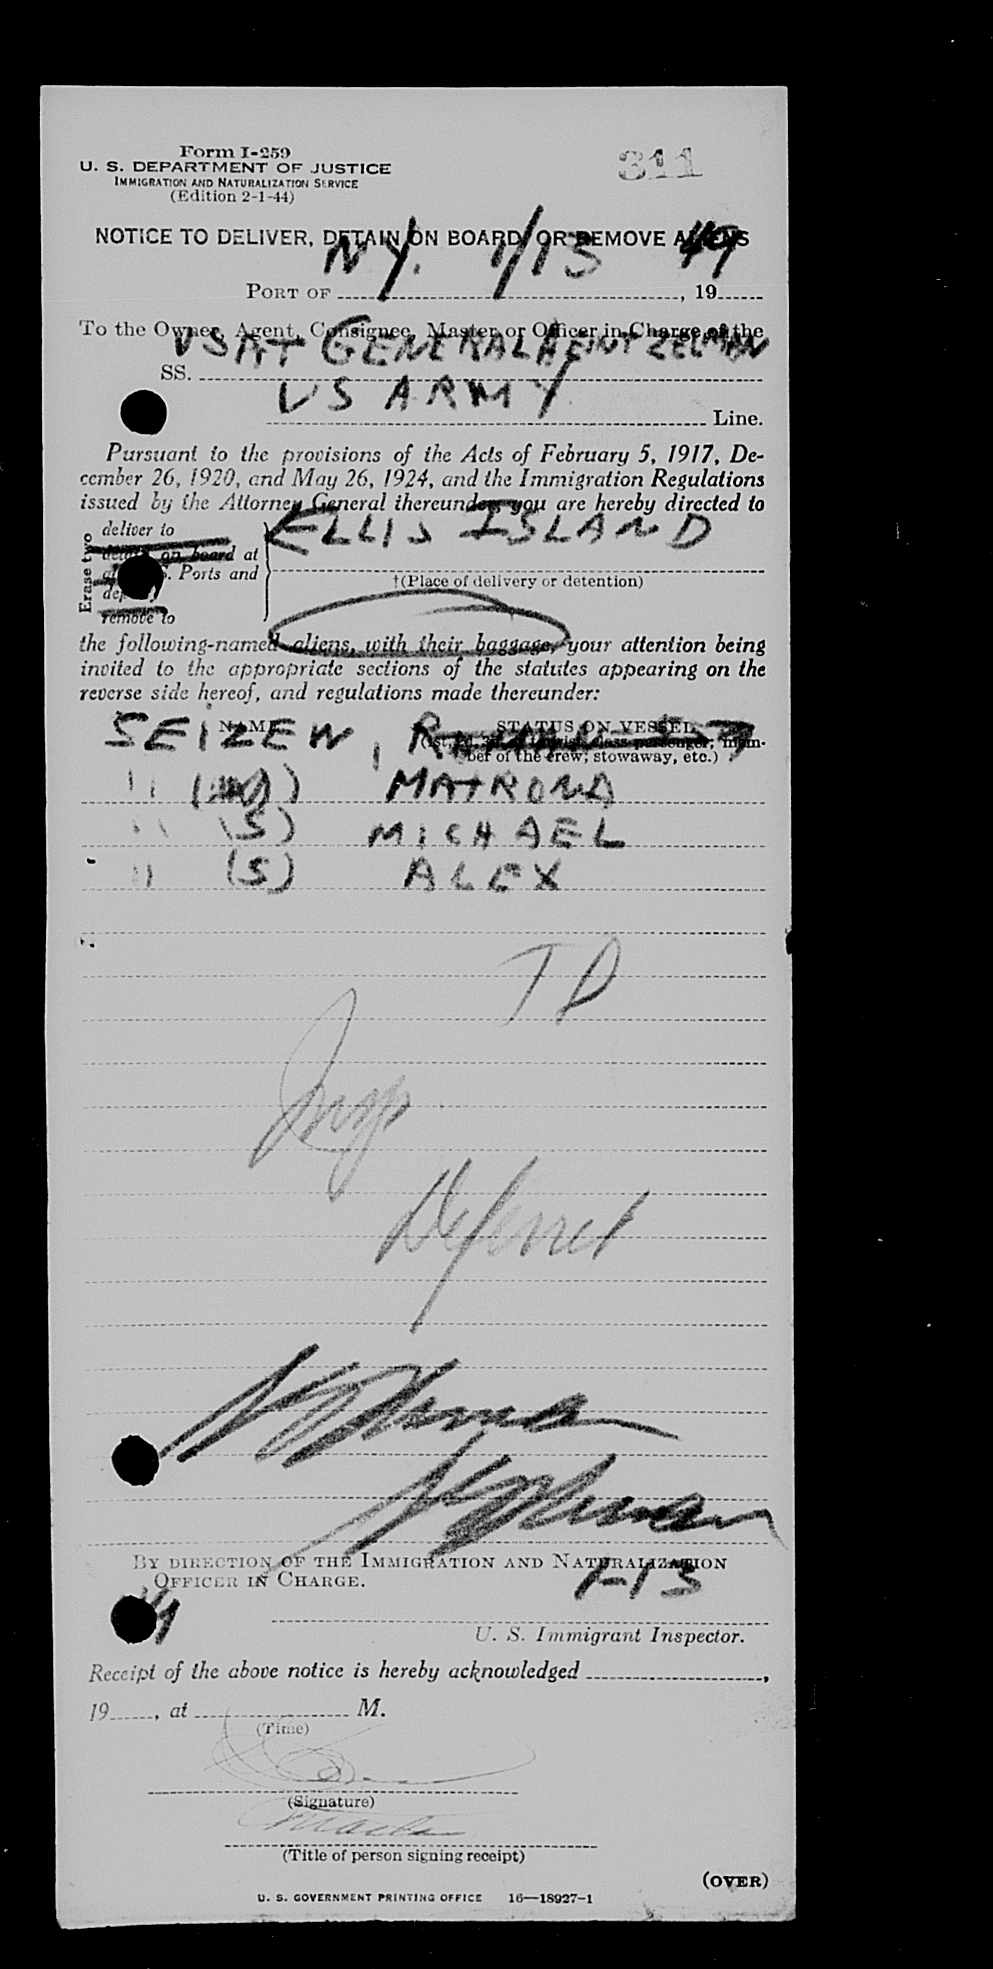 Form I-259
U. S. DEPARTMENT OF JUSTICE
IMMIGRATION AND NATURALIZATION SERVICE
(Edition 2-1-44)
311
NOTICE TO DELIVER, DETAIN ON BOARD, OR REMOVE ALIENS
N Y. 1/13 49
PORT OF , 19
To the Owner, Agent, Consignee, Master or Officer in Charge of the
USAT GENERAL HEINTZELMAN
SS.
US ARMY
Line.
Pursuant to the provisions of the Acts of February 5, 1917, De-
cember 26, 1920, and May 26, 1924, and the Immigration Regulations
issued by the Attorney General thereunder, you are hereby directed to
ELLIS ISLAND
Erase two
deliver to
detain on board at
Ports and
remove to
†(Place of delivery or detention)
the following-named aliens, with their baggage, your attention being
invited to the appropriate sections of the statutes appearing on the
reverse side hereof, and regulations made thereunder:
NAME STATUS ON VESSEL
SEIZEW,
ber of the crew; stowaway, etc.)
" MATRONA
" (S) MICHAEL
" (S) ALEX
T D
Deferred
BY DIRECTION OF THE IMMIGRATION AND NATURALIZATION
OFFICER IN CHARGE.
1-13
U. S. Immigrant Inspector.
Receipt of the above notice is hereby acknowledged ,
19 , at M.
(Time)
(Signature)
(Title of person signing receipt)
(OVER)
U. S. GOVERNMENT PRINTING OFFICE 16—18927-1